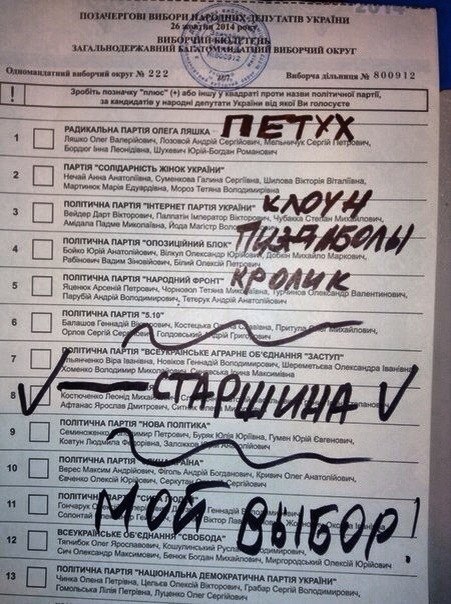 ПОЗАЧЕРГОВІ ВИБОРИ НАРОДНИХ ДЕПУТАТІВ УКРАЇНИ
26 жовтня 2014 року
ВИБОРЧИЙ БЮЛЕТЕНЬ
ЗАГАЛЬНОДЕРЖАВНИЙ БАГАТОМАНДАТНИЙ ВИБОРЧИЙ ОКРУГ
Одномандатний виборчий округ № 222 Виборча дільниця № 800912
! Зробіть позначку "плюс" (+) або іншу у квадраті проти назви політичної партії,
за кандидатів у народні депутати України від якої Ви голосуєте
1 РАДИКАЛЬНА ПАРТІЯ ОЛЕГА ЛЯШКА ПЕТУХ
Ляшко Олег Валерійович, Лозовой Андрій Сергійович, Мельничук Сергій Петрович,
Бордюг Інна Леонідівна, Шухевич Юрій-Богдан Романович
2 ПАРТІЯ "СОЛІДАРНІСТЬ ЖІНОК УКРАЇНИ"
Нечай Анна Анатоліївна, Суменкова Галина Сергіївна, Шилова Вікторія Віталіївна,
Мартинюк Марія Едуардівна, Мороз Тетяна Володимирівна
3 ПОЛІТИЧНА ПАРТІЯ "ІНТЕРНЕТ ПАРТІЯ УКРАЇНИ" КЛОУН
Вейдер Дарт Вікторович, Палпатін Імператор Вікторович, Чубакка Степан Михайлович,
Амідала Падме Миколаївна, Йода Магістр
4 ПОЛІТИЧНА ПАРТІЯ "ОПОЗИЦІЙНИЙ БЛОК" ПИЗДАБОЛЫ
Бойко Юрій Анатолійович, Вілкул Олександр Юрійович, Добкін Михайло Маркович,
Рабінович Вадим Зіновійович, Білий Олексій Петрович
5 ПОЛІТИЧНА ПАРТІЯ "НАРОДНИЙ ФРОНТ" КРОЛИК
Яценюк Арсеній Петрович, Чорновол Тетяна Миколаївна, Турчинов Олександр Валентинович,
Парубій Андрій Володимирович, Тетерук Андрій Анатолійович
6 ПОЛІТИЧНА ПАРТІЯ "5.10"
Балашов Геннадій Костецька Притула Михайлович,
Орлов Сергій Голдовський Григорович
7 ПОЛІТИЧНА ПАРТІЯ "ВСЕУКРАЇНСЬКЕ АГРАРНЕ ОБ'ЄДНАННЯ "ЗАСТУП"
Ульянченко Віра Іванівна, Новіков Геннадій Володимирович, Шереметьєва Олександра Іванівна,
Хоменко Володимир Максимівна
8 СТАРШИНА
Костюченко Леонід
Афтанас Ярослав Дмитрович,
9 ПОЛІТИЧНА ПАРТІЯ "НОВА ПОЛІТИКА"
Семиноженко Петрович, Буряк Юлія Юріївна, Гумен Юрій Євгенович,
Ковтун Людмила
10 ПОЛІТИЧНА ПАРТІЯ
Верес Максим Андрійович, Фіголь Андрій Богданович, Кривич Олег Анатолійович,
Євченко Олексій Юрійович, Сергійович
11 ПОЛІТИЧНА ПАРТІЯ МОЙ ВЫБОР!
Гончарук
12 ВСЕУКРАЇНСЬКЕ ОБ'ЄДНАННЯ "СВОБОДА"
Тягнибок Олег Ярославович, Кошулинський Руслан
Сич Олександр Максимович, Бенюк Богдан Михайлович, Миргородський Олексій Юрійович
13 ПОЛІТИЧНА ПАРТІЯ "НАЦІОНАЛЬНА ДЕМОКРАТИЧНА ПАРТІЯ УКРАЇНИ"
Чинка Олена Петрівна, Цельох Олексій Вікторович, Грабар Сергій Володимирович,
Гомольська Лілія Петрівна, Луценко Олег Сергійович